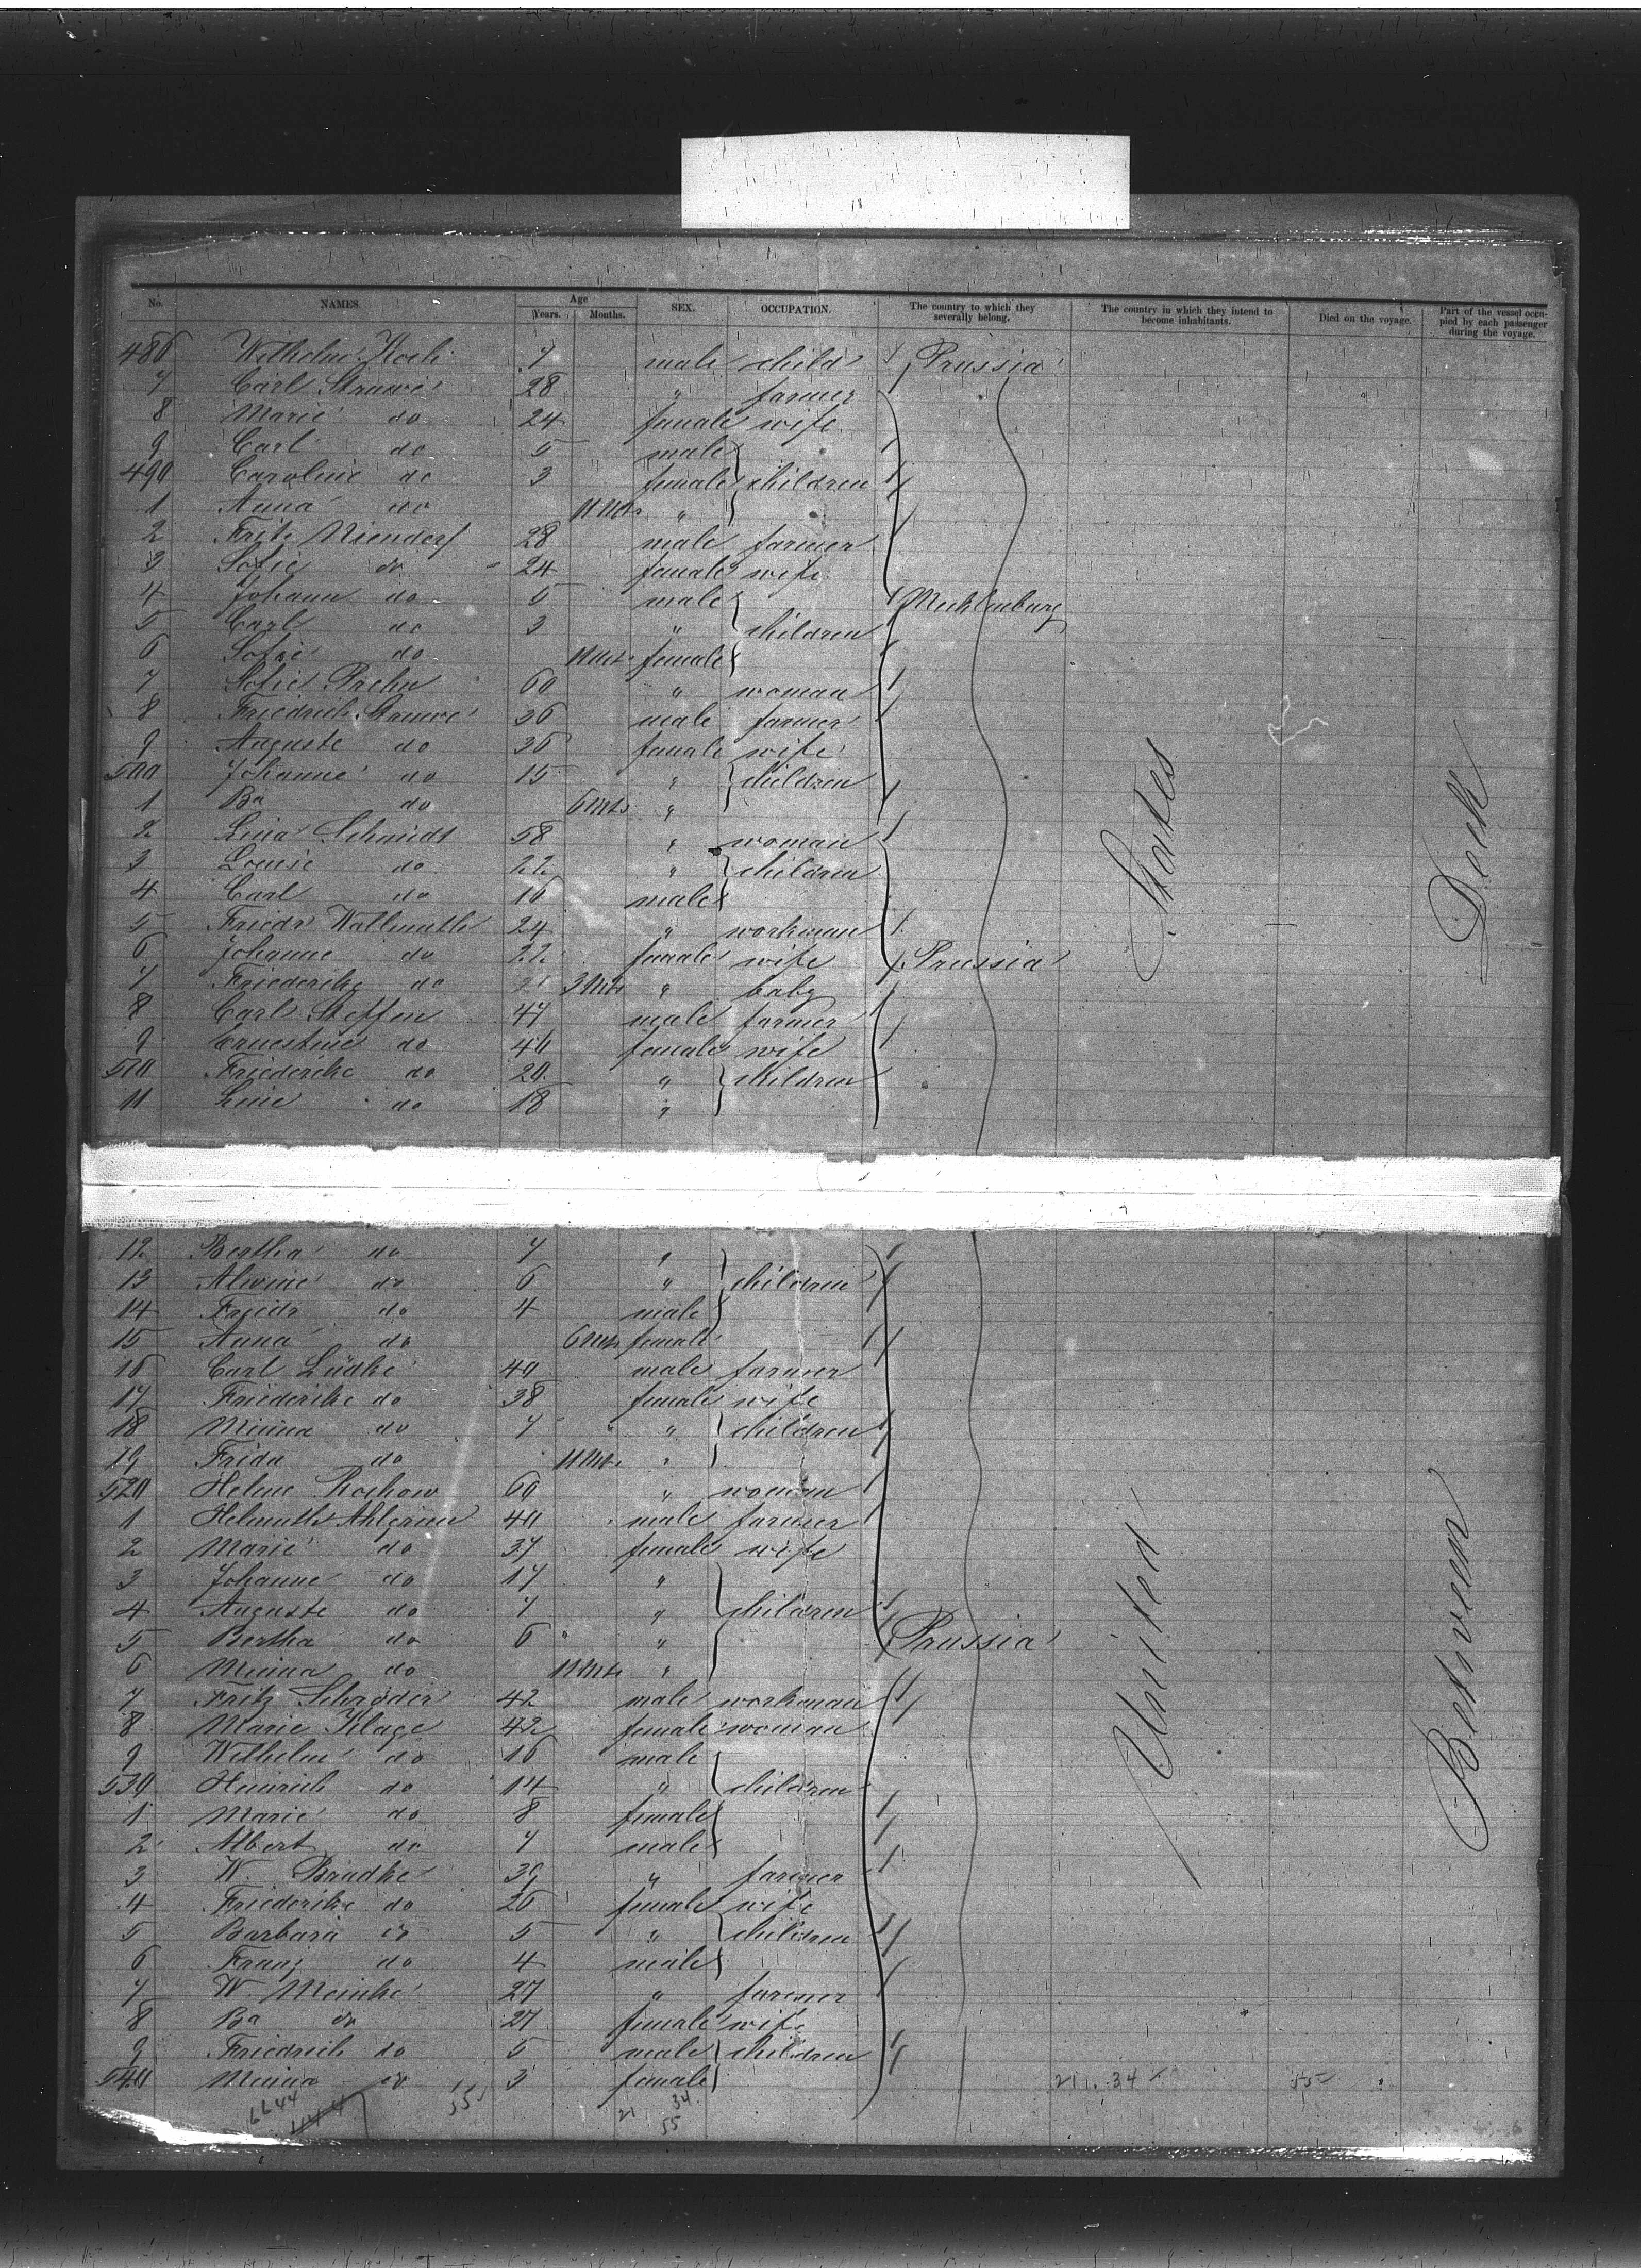 No. NAMES Age Years. Months. SEX. OCCUPATION. The country to which they severally belong. The country in which they intend to become inhabitants. Died on the voyage. Part of the vessel occupied by each passenger during the voyage.
486 Wilhelm Koch 7 male child Prussia
7 Carl Struwe 28 " farmer
8 Marie do 24 female wife
9 Carl do 5 male
490 Caroline do 3 female children
1 Anna do 11 Mts "
2 Fritz Niendorf 28 male farmer
3 Sofie do 24 female wife
4 Johann do 5 male Mecklenburg
5 Carl do 3 " children
6 Sofie do 11 Mts female
7 Sofie Prehn 60 " woman
8 Friedrich Struwe 36 male farmer
9 Auguste do 36 female wife
500 Johanne do 15 " children
1 Ba do 6 Mts "
2 Lina Schmidt 58 " woman
3 Louise do 22 " children
4 Carl do 16 male
5 Friedr Wallmuth 24 " workman
6 Johanne do 22 female wife Prussia
7 Friederike do 3 Mts " baby
8 Carl Steffen 47 male farmer
9 Ernestine do 40 female wife
510 Friederike do 20 " children
11 Line do 18 "
12 Bertha do 7 "
13 Alwine do 6 " children
14 Friedr do 4 male
15 Anna do 6 Mts female
16 Carl Lüdke 40 male farmer
17 Friederike do 38 female wife
18 Minna do 7 " children
19 Frida do 11 Mts "
520 Helene Rochow 60 " woman
1 Helmuth 40 male farmer
2 Marie do 37 female wife
3 Johanne do 17 "
4 Auguste do 7 " children
5 Bertha do 6 " Prussia
6 Minna do 11 Mts "
7 Fritz Schröder 42 male workman
8 Marie Klage 42 female woman
9 Wilhelm do 16 male
530 Heinrich do 14 " children
1 Marie do 8 female
2 Albert do 7 male
3 W. Bradke 39 " farmer
4 Friederike do 26 female wife
5 Barbara do 5 " children
6 Franz do 4 male
7 W. Meinke 27 " farmer
8 Ba do 27 female wife
9 Friedrich do 5 male children
540 Minna do 3 female
21 34 55
LL 44 55 21 34
55
United States
Between Deck